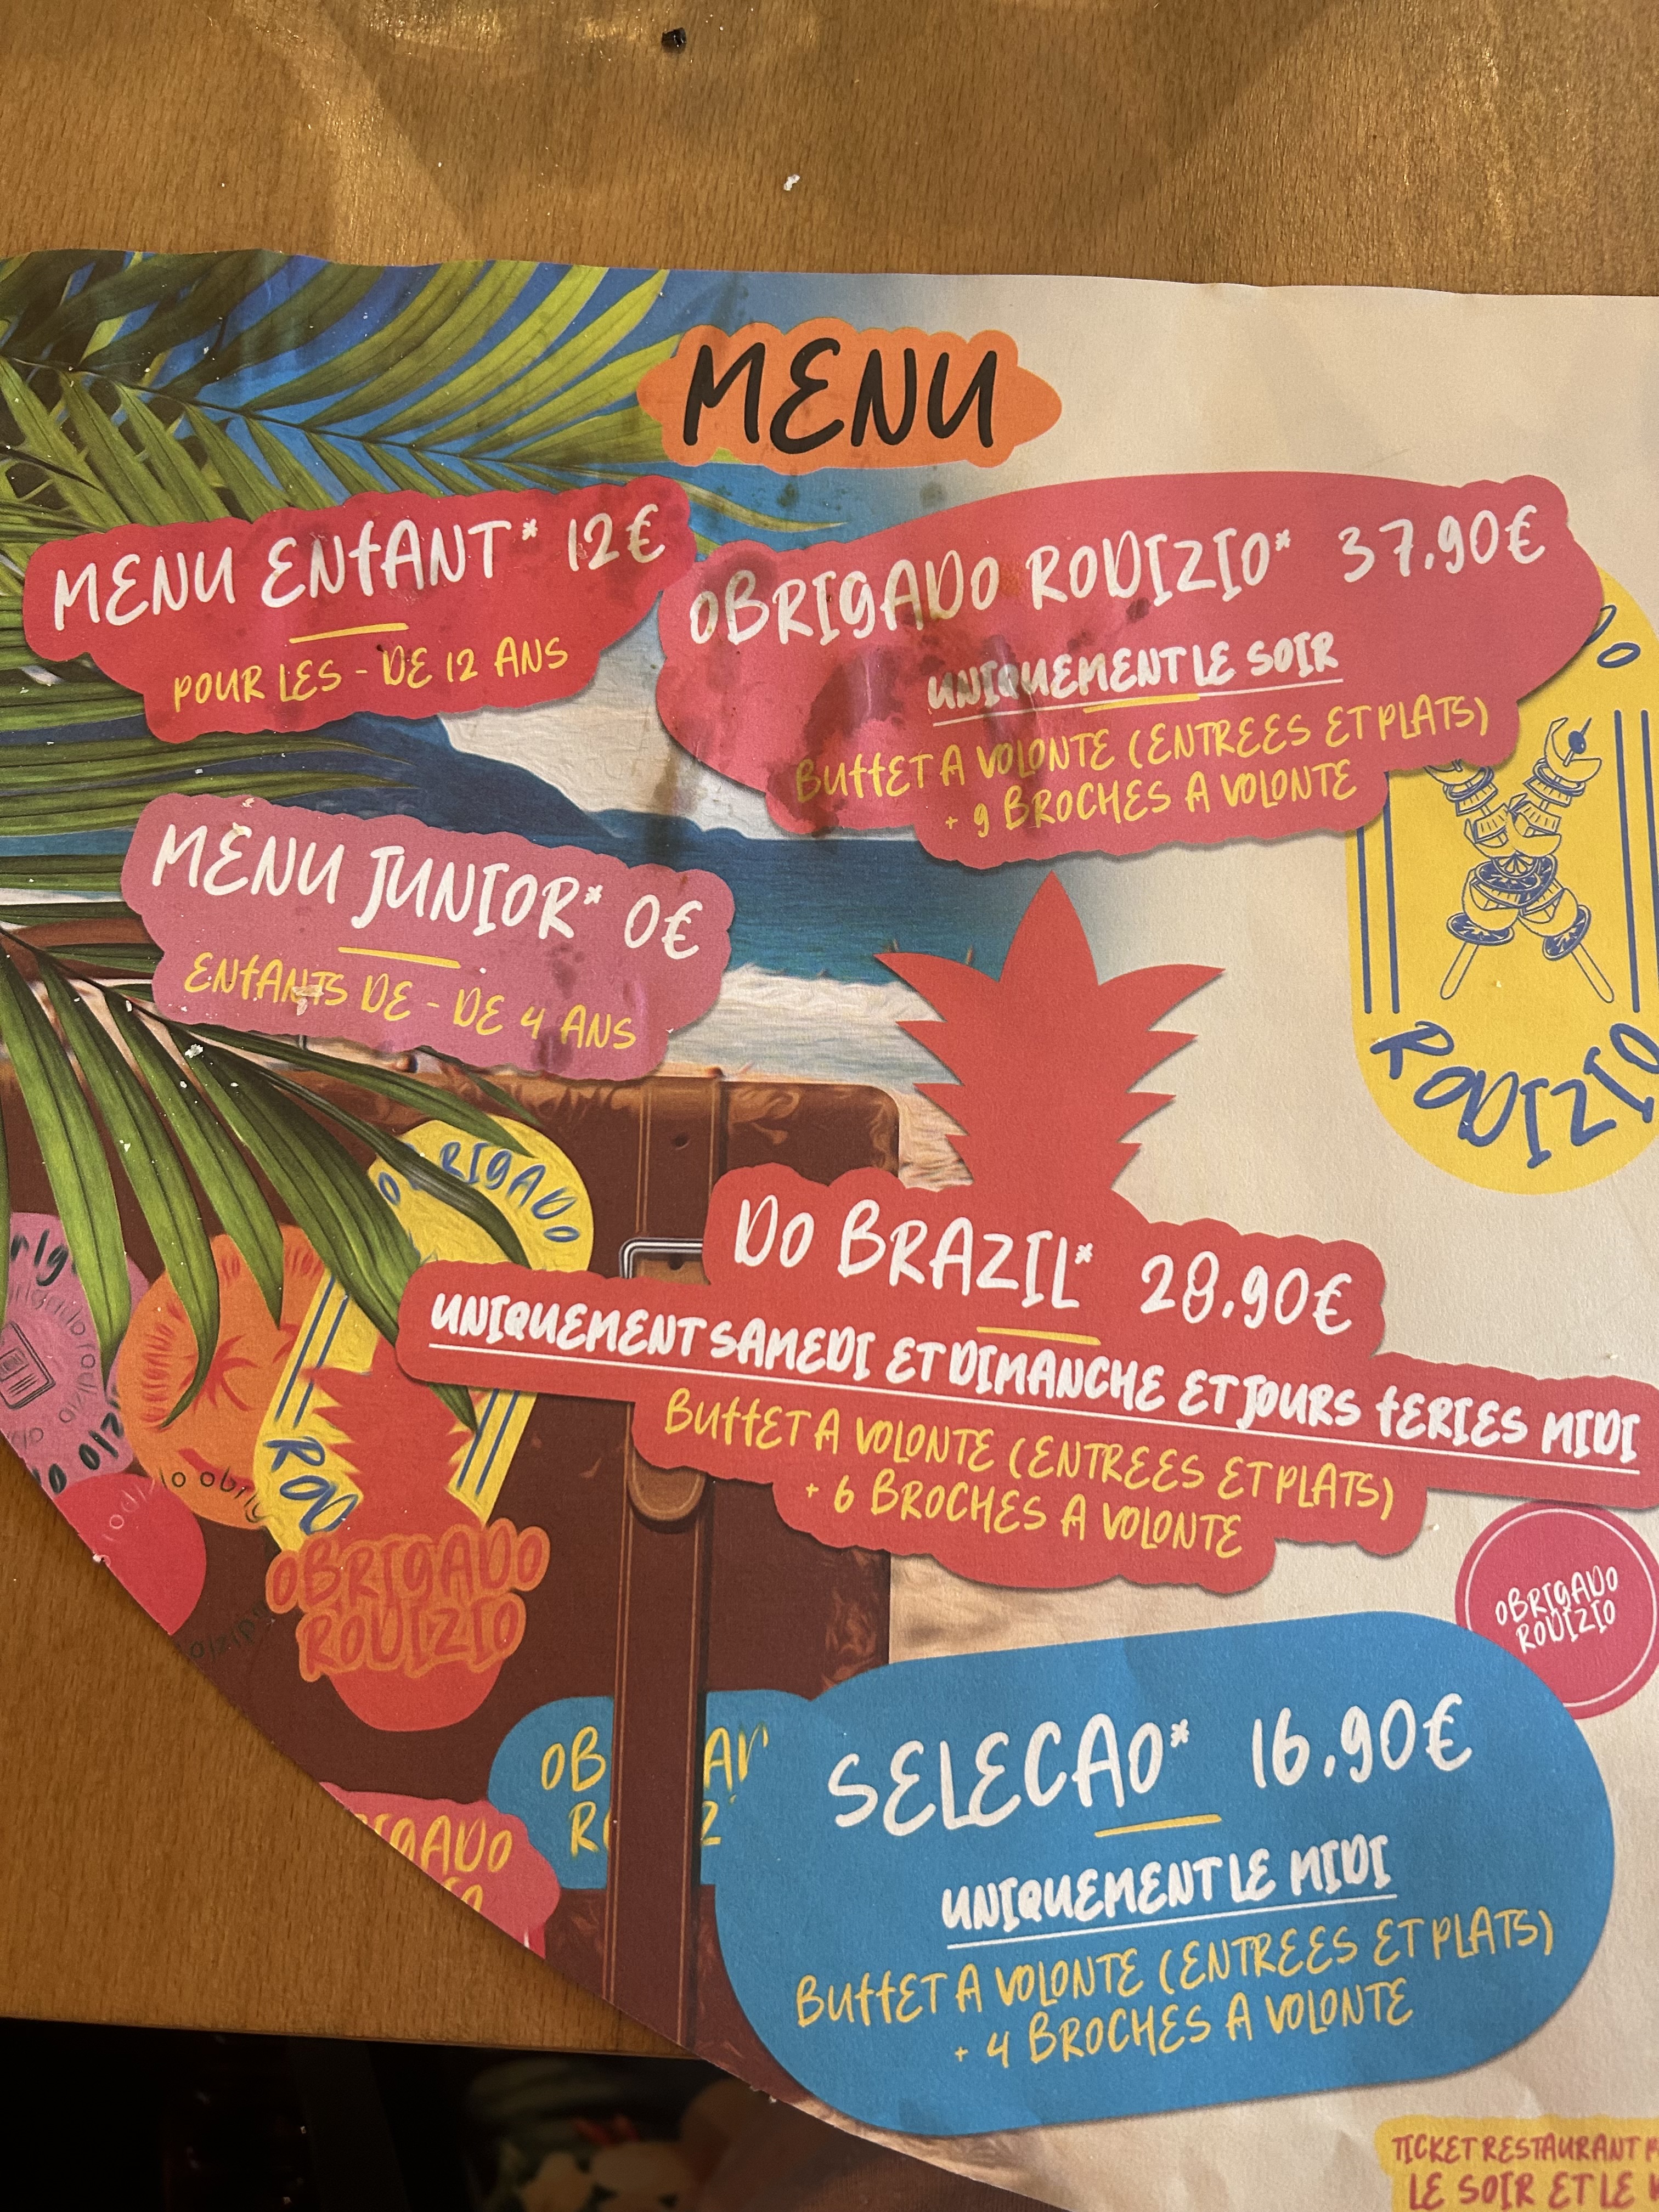 MENU
MENU ENFANT* 12€
POUR LES - DE 12 ANS
OBRIGADO RODIZIO* 37.90€
UNIQUEMENT LE SOIR
BUFFET A VOLONTE (ENTREES ET PLATS)
+ 9 BROCHES A VOLONTE
MENU JUNIOR* 0€
ENFANTS DE - DE 4 ANS
RODIZIO
OBRIGADO
DO BRAZIL* 28.90€
UNIQUEMENT SAMEDI ET DIMANCHE ET JOURS FERIES MIDI
BUFFET A VOLONTE (ENTREES ET PLATS)
+ 6 BROCHES A VOLONTE
OBRIGADO
RODIZIO
OBRIGADO
RODIZIO
SELECAO* 16.90€
UNIQUEMENT LE MIDI
BUFFET A VOLONTE (ENTREES ET PLATS)
+ 4 BROCHES A VOLONTE
TICKET RESTAURANT
LE SOIR ET LE